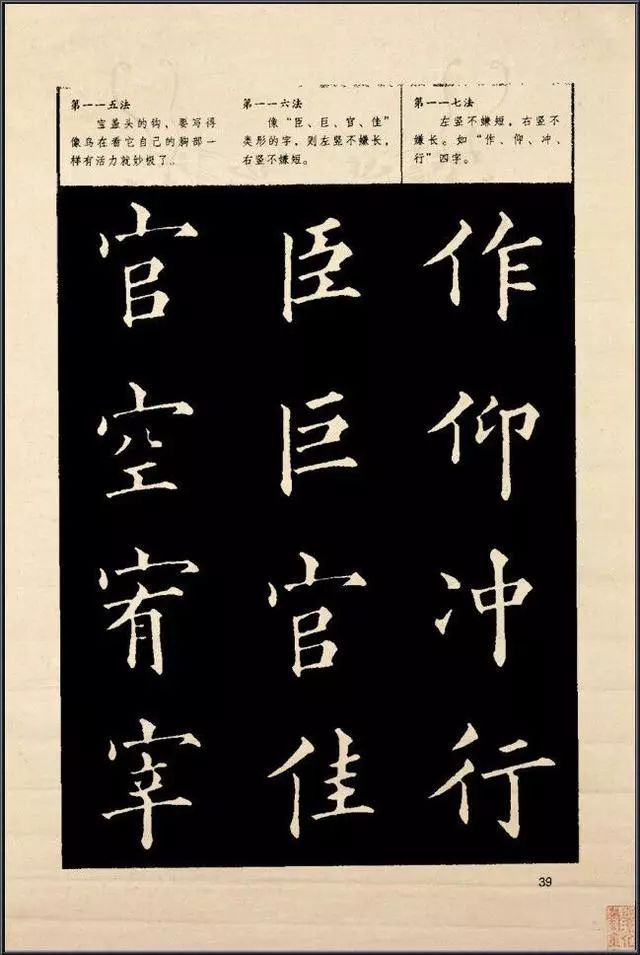 第一一五法
宝盖头的钩、要写得
像鸟在看它自己的胸部一
样有活力就妙极了..
第一一六法
像“臣、巨、官、佳”
类形的字，则左竖不嫌长，
右竖不嫌短。
第一一七法
左竖不嫌短，右竖不
嫌长。如“作、仰、冲、
行”四字。
官 臣 作
空 巨 仰
宥 官 冲
宰 佳 行
39